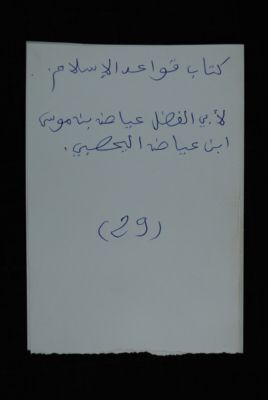 كتاب قواعد الإسلام.
لأبي الفضل عياض بن موسى
ابن عياض اليحصبي.
(29)